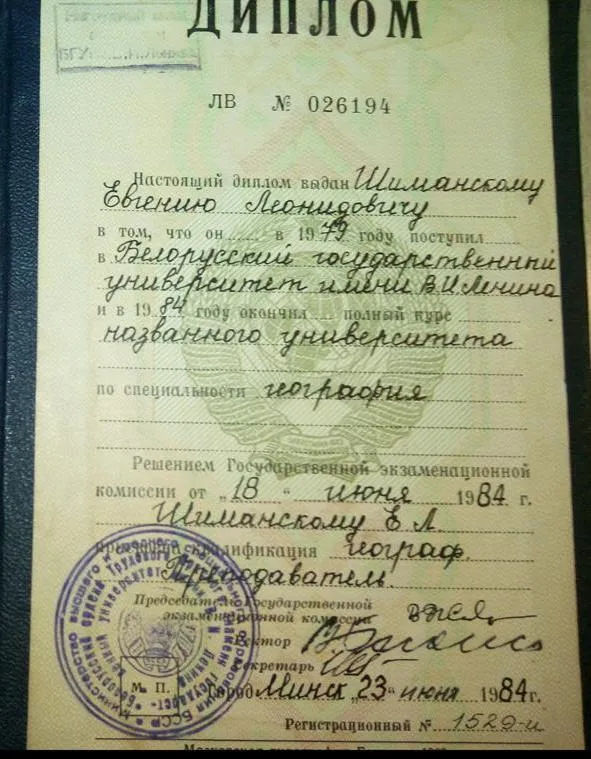 ДИПЛОМ
БГУ
ЛВ № 026194
Настоящий диплом выдан Шиманскому
Евгению Леонидовичу
в том, что он в 1979 году поступил
в Белорусский государственный
университет имени В.И.Ленина
и в 1984 году окончил полный курс
названного университета
по специальности география
Решением Государственной экзаменационной
комиссии от „18“ июня 1984 г.
Шиманскому Е. Л.
квалификация географ.
Преподаватель.
Председатель Государственной
экзаменационной комиссии
Ректор
Секретарь
М. П.
Город Минск „23“ июня 1984 г.
Регистрационный № 1529-и
Министерство высшего и среднего специального образования БССР